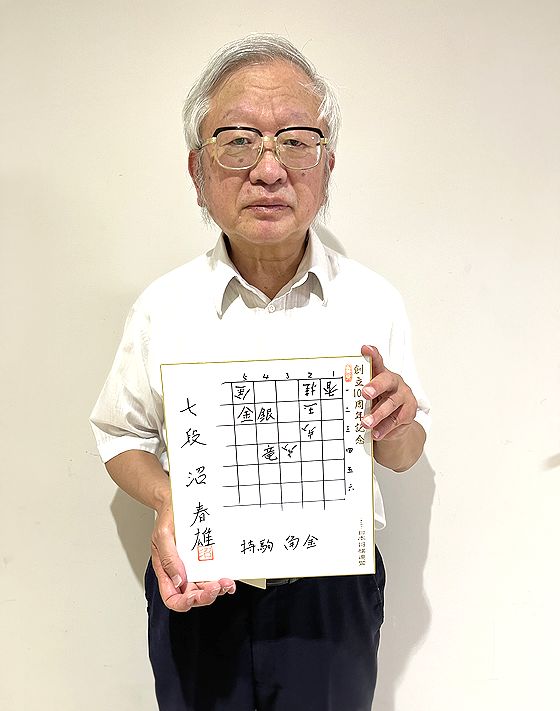 創立10周年記念
5 4 3 2 1
金 桂 香 一
金 銀 王 二
歩 三
竜 歩 四
五
六
七段 沼 春雄
持駒 角金
日本将棋連盟